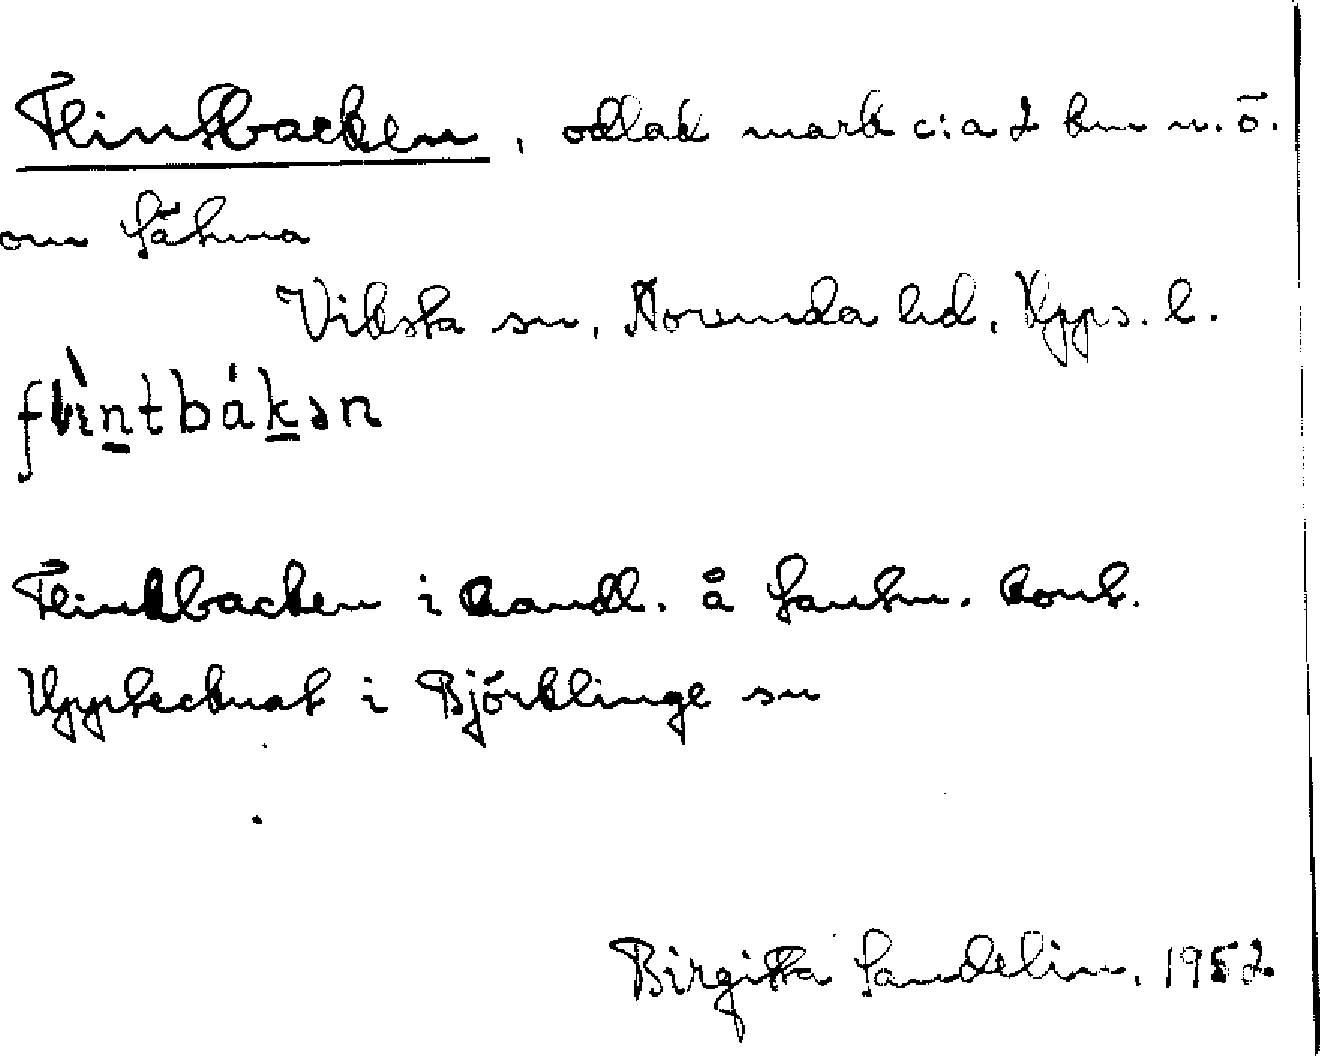 Flintbacken, odlad mark c:a 2 km n.ö.
om Sätuna
Viksta sn, Norunda hd, Upps. l.
flìntbákən
Flintbacken i handl. å lantm. kont.
Upptecknat i Björklinge sn
Birgitta Sandelin, 1952